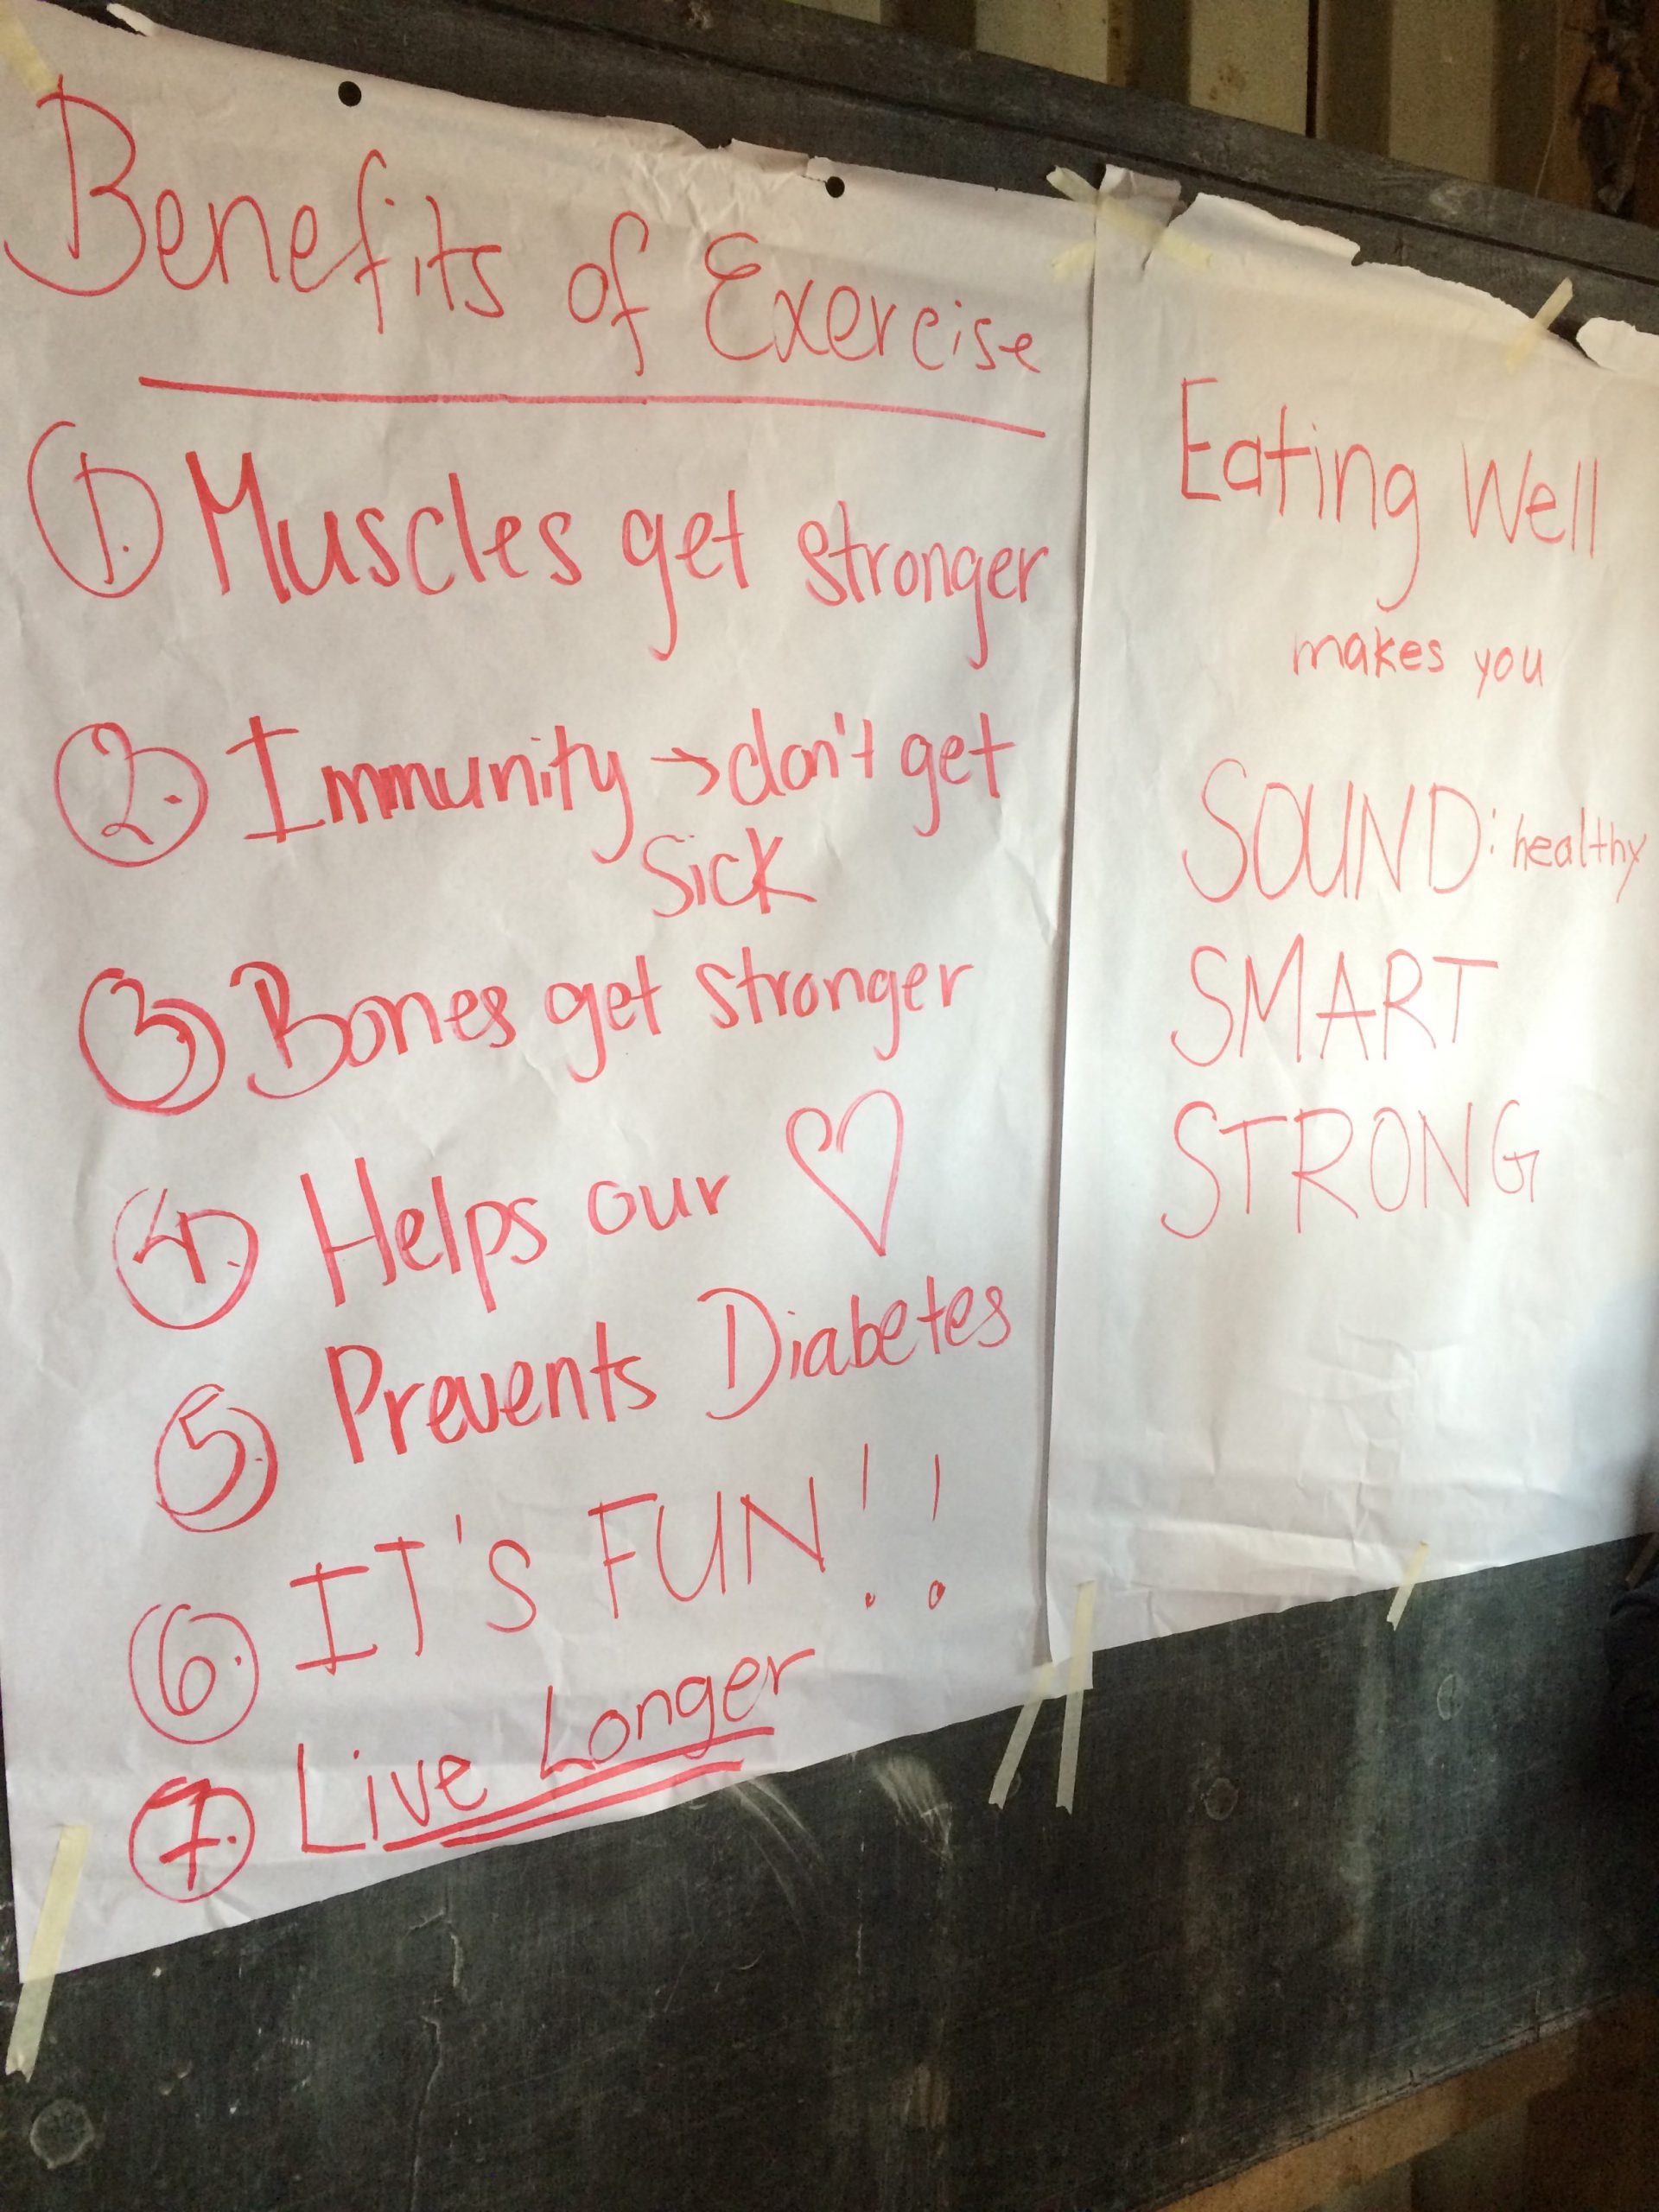 Benefits of Exercise
1. Muscles get stronger
2. Immunity → don't get
sick
3. Bones get stronger
4. Helps our ♡
5. Prevents Diabetes
6. IT'S FUN!!
7. Live Longer
Eating Well
makes you
SOUND: healthy
SMART
STRONG